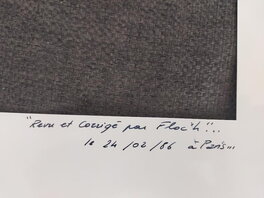 "Revu et Corrigé par Floc'h"...
le 24 / 02 / 86 à Paris...